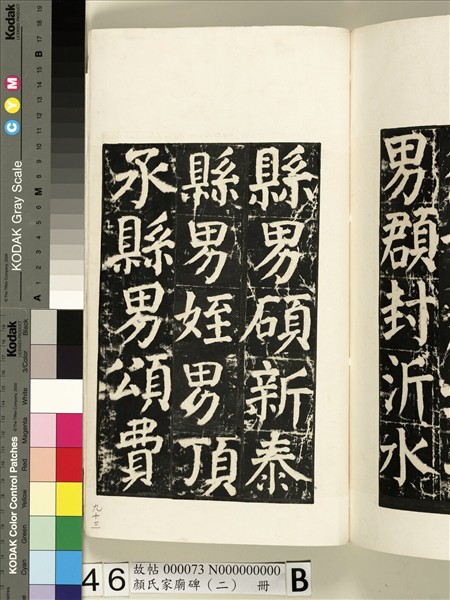 男頵封沂水
縣男碩新泰
縣男姪男頂
氶縣男頌費
九十三
46
故帖 000073 N000000000
顏氏家廟碑（二） 冊
B
Kodak
C Y M
KODAK Gray Scale
A 1 2 3 4 5 6 M 8 9 10 11 12 13 14 15 B 17 18 19
Kodak
KODAK Color Control Patches
Blue Cyan Green Yellow Red Magenta White 3/Color Black